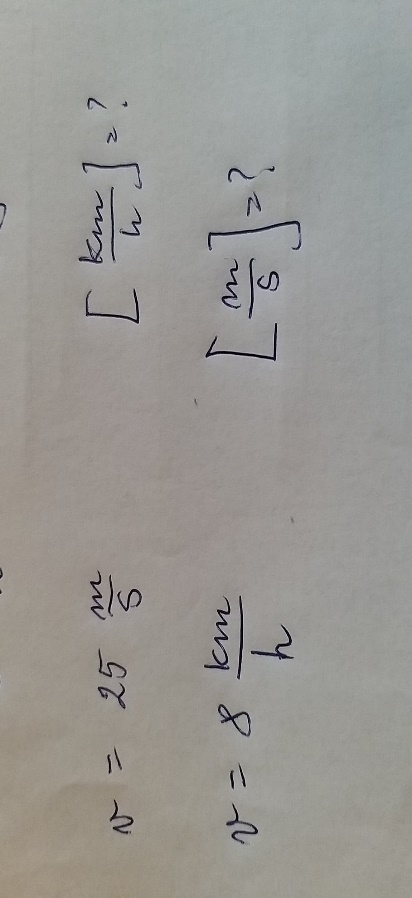 v = 25 m/s [km/h] = ?
v = 8 km/h [m/s] = ?